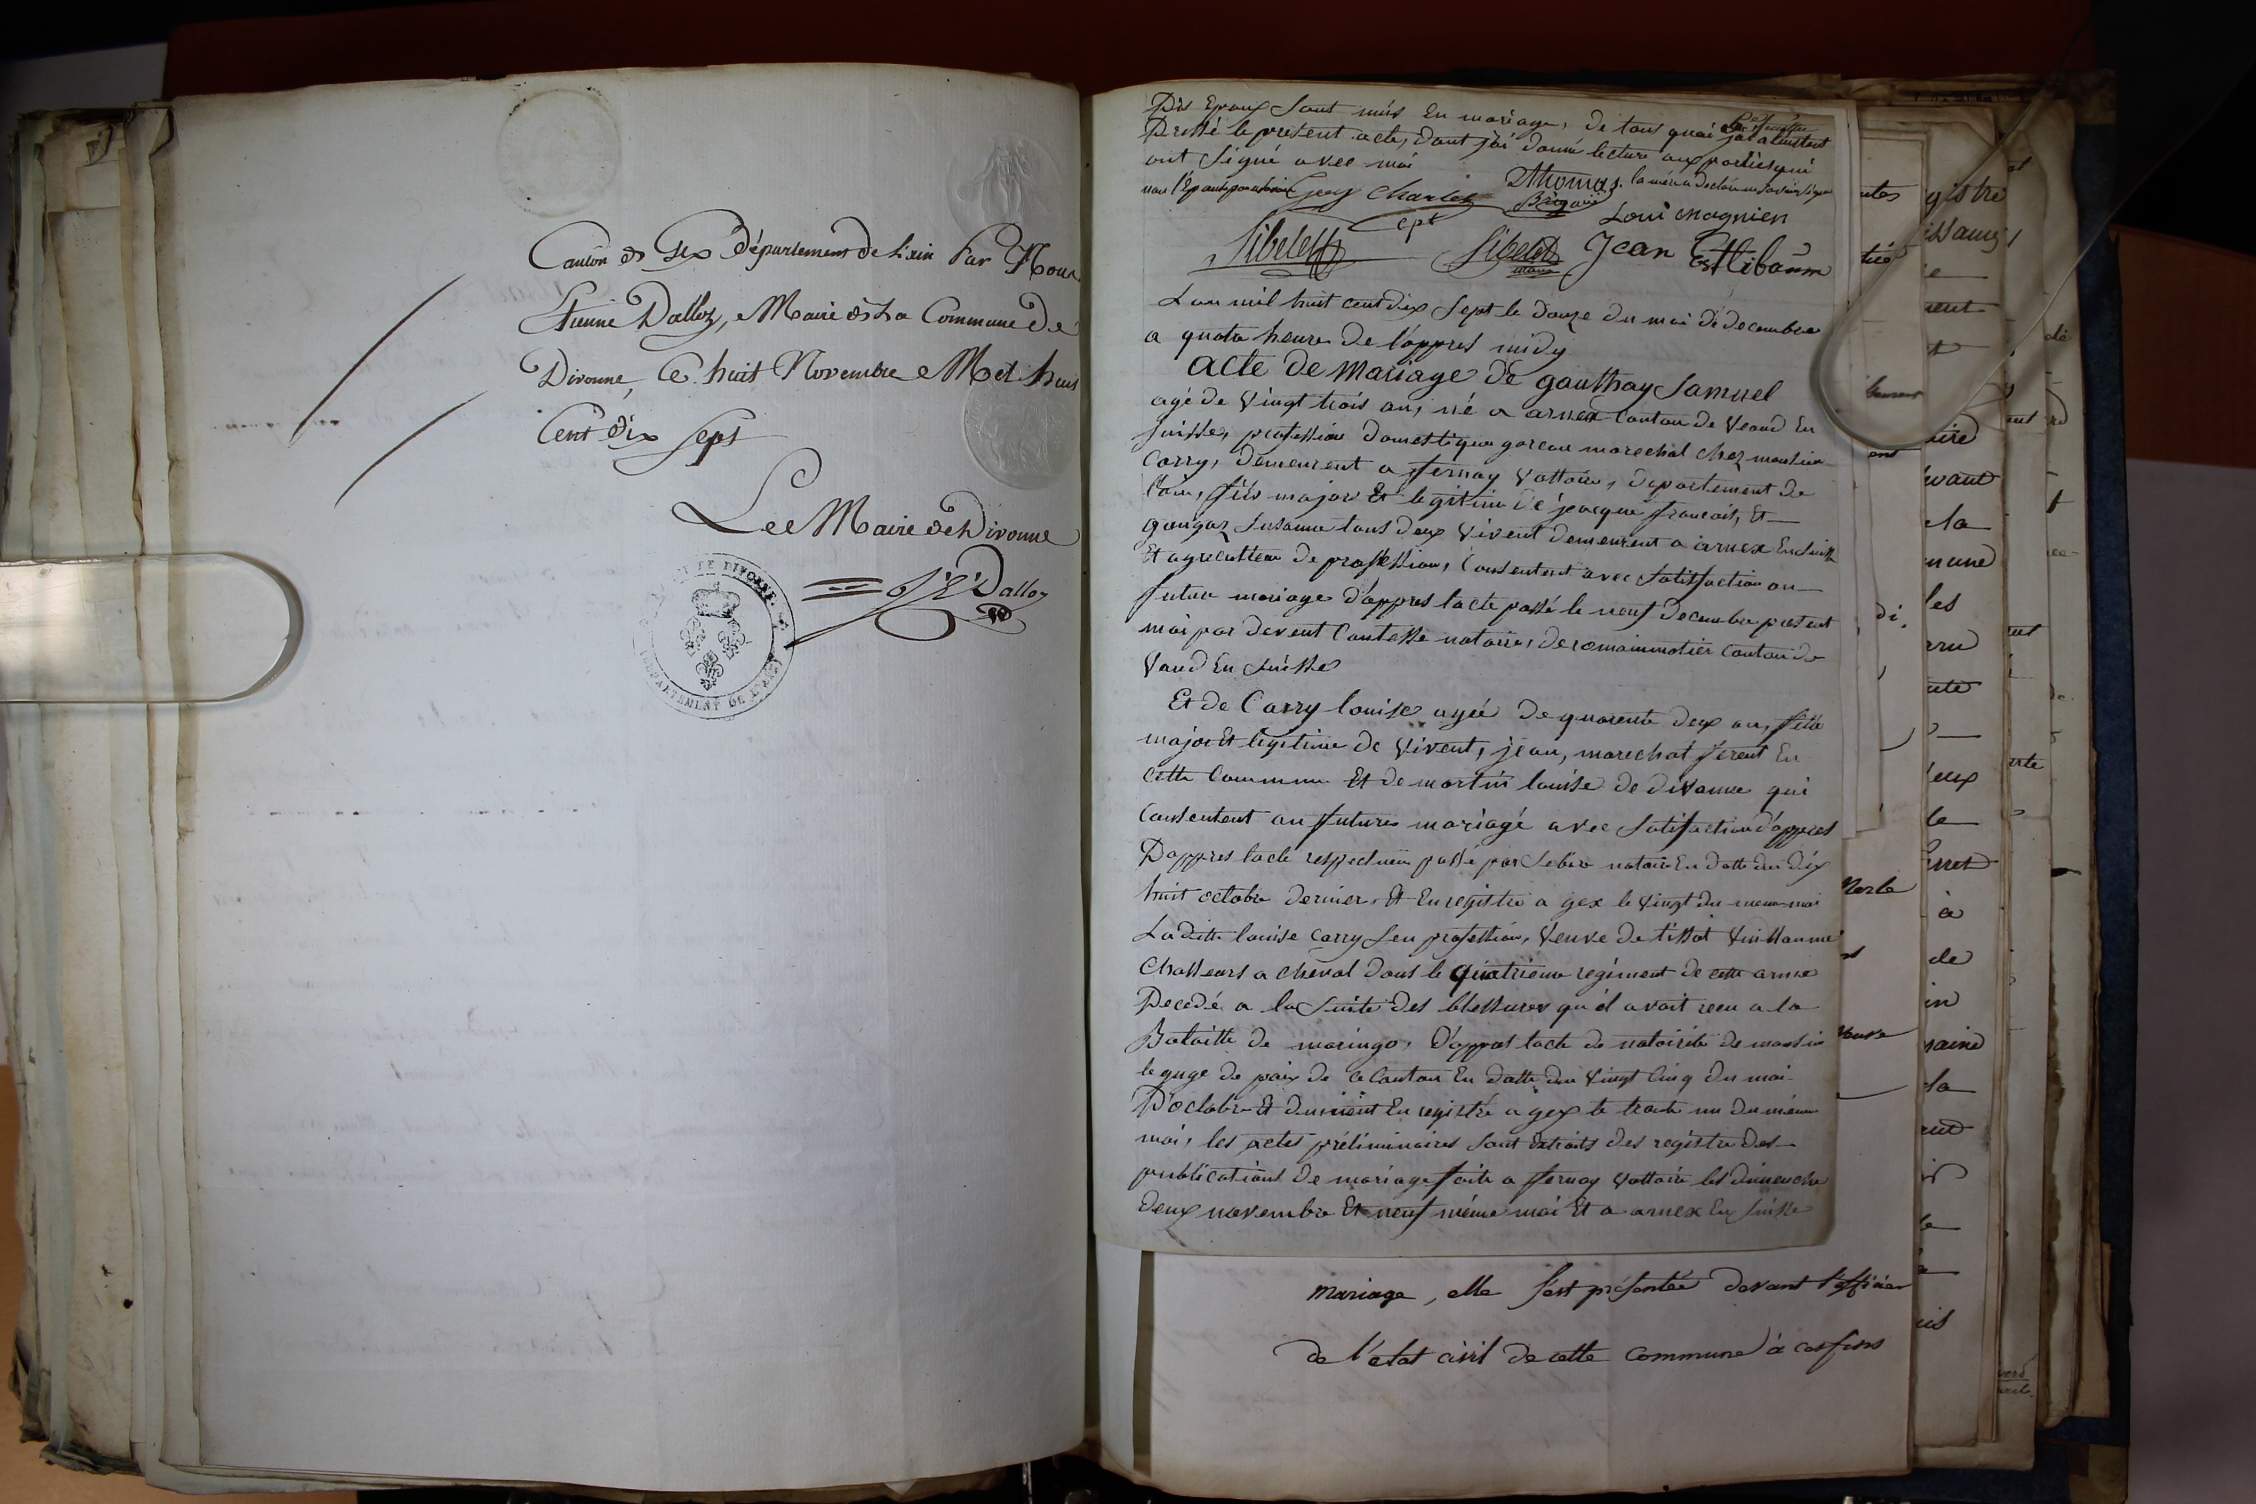 Canton de Gex Département de L'ain Par Nous
Etienne Dalloz, Maire de La Commune de
Divonne, Ce huit Novembre Mil huit
Cent dix sept
Le Maire de Divonne
Dalloz
MAIRIE DE DIVONNE
DEPARTEMENT DE L'AIN
Dis Epoux sont unis En mariage, de tous quoi
Dressé le present acte, dont j'ai donné lecture aux parties qui
ont signé avec moi
Charles
Thomas
la mère a declaré ne savoir signer
cpt
Brigadié
Loui magnien
Sibelet
Sibelet
maire
Jean
L'an mil huit cent dix sept le douze du moi de decembre
a quatre heures de l'appres midy
acte de Mariage de gauthay Samuel
agé de vingt trois an, né a arnex Canton de Veaud En
suisse, profession domestique garcon marechal chez monsieur
Carry, demeurent a fernay Vottaire, departement de
l'ain, fils major Et legitime de jeacque francois, Et
gongaz Susanne tous deux vivent demeurent a arnex En suisse
Et agriculteur de proffession, Consentent avec satisfaction au
future mariage d'appres l'acte passé le neuf decembre present
moi par devent Contesse notaire, de romainmotier Canton de
Vaud En suisse
Et de Carry louise agée de quarente deux an, fille
major Et legitime de vivent, jean, marechal ferent En
cette Commune Et de martin louise de divonne qui
Consentent au future mariagé avec satisfaction d'appres
D'appres l'acte respectueu passé par notaire En datte du dix
huit octobre dernier, Et Enregistré a gex le vingt du meme moi
Laditte louise Carry sen profession, Veuve de tissot
Chasseurs a cheval dans le quatrieme regiment de cette arme
Decedé a la suite des blessures qu'il avait recu a la
Bataille de maringo, d'appres l'acte de notoirité de monsieur
le guge de paix de ce Canton En datte du vingt cinq du moi
D'octobre Et duement En registré a gex le trente un du même
moi, les actes préliminaires sont extraits des registre des
publications de mariage faite a fernay Vottaire les dimenche
deux novembre Et neuf même moi Et a arnex En suisse
mariage, elle s'est présentée devant l'officier
de l'état civil de cette commune à ces fins